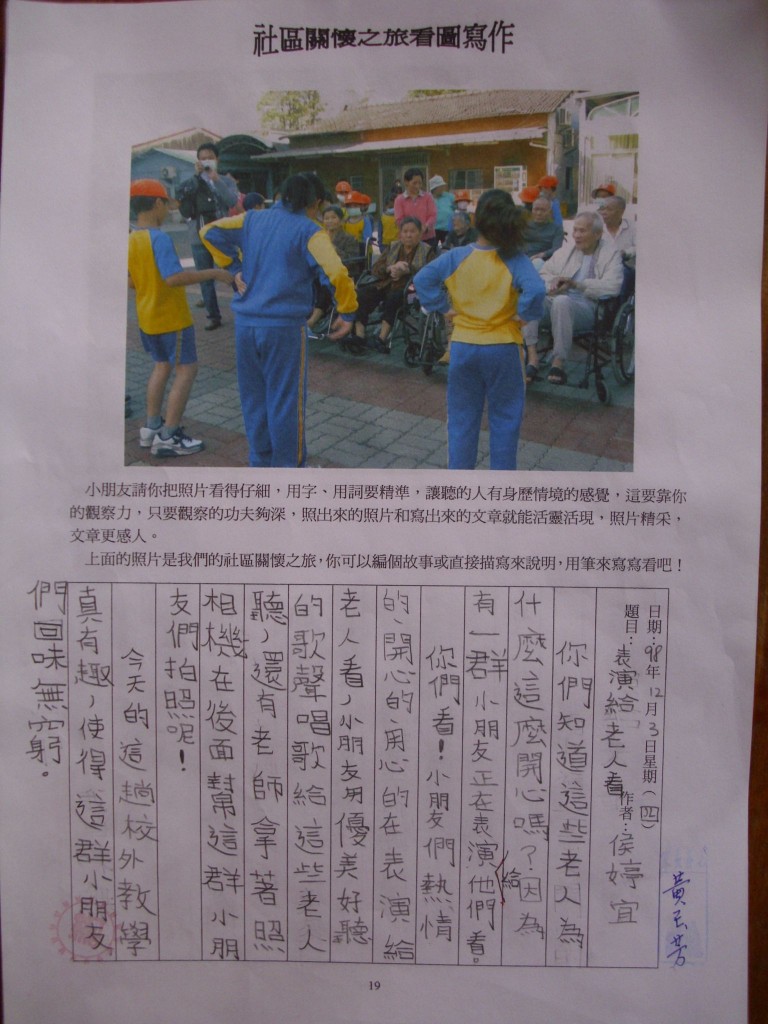 社區關懷之旅看圖寫作
小朋友請你把照片看得仔細，用字、用詞要精準，讓聽的人有身歷情境的感覺，這要靠你
的觀察力，只要觀察的功夫夠深，照出來的照片和寫出來的文章就能活靈活現，照片精采，
文章更感人。
上面的照片是我們的社區關懷之旅，你可以編個故事或直接描寫來說明，用筆來寫寫看吧！
日期：98年12月3日星期（四）
題目：表演給老人看 作者：侯婷宜
你們知道這些老人為
什麼這麼開心嗎？因為
有一群小朋友正在表演給他們看。
你們看！小朋友們熱情
的、開心的、用心的在表演給
老人看，小朋友用優美好聽
的歌聲唱歌給這些老人
聽，還有老師拿著照
相機在後面幫這群小朋
友們拍照呢！
今天的這趟校外教學
真有趣，使得這群小朋友
們回味無窮。
黃玉芳
19